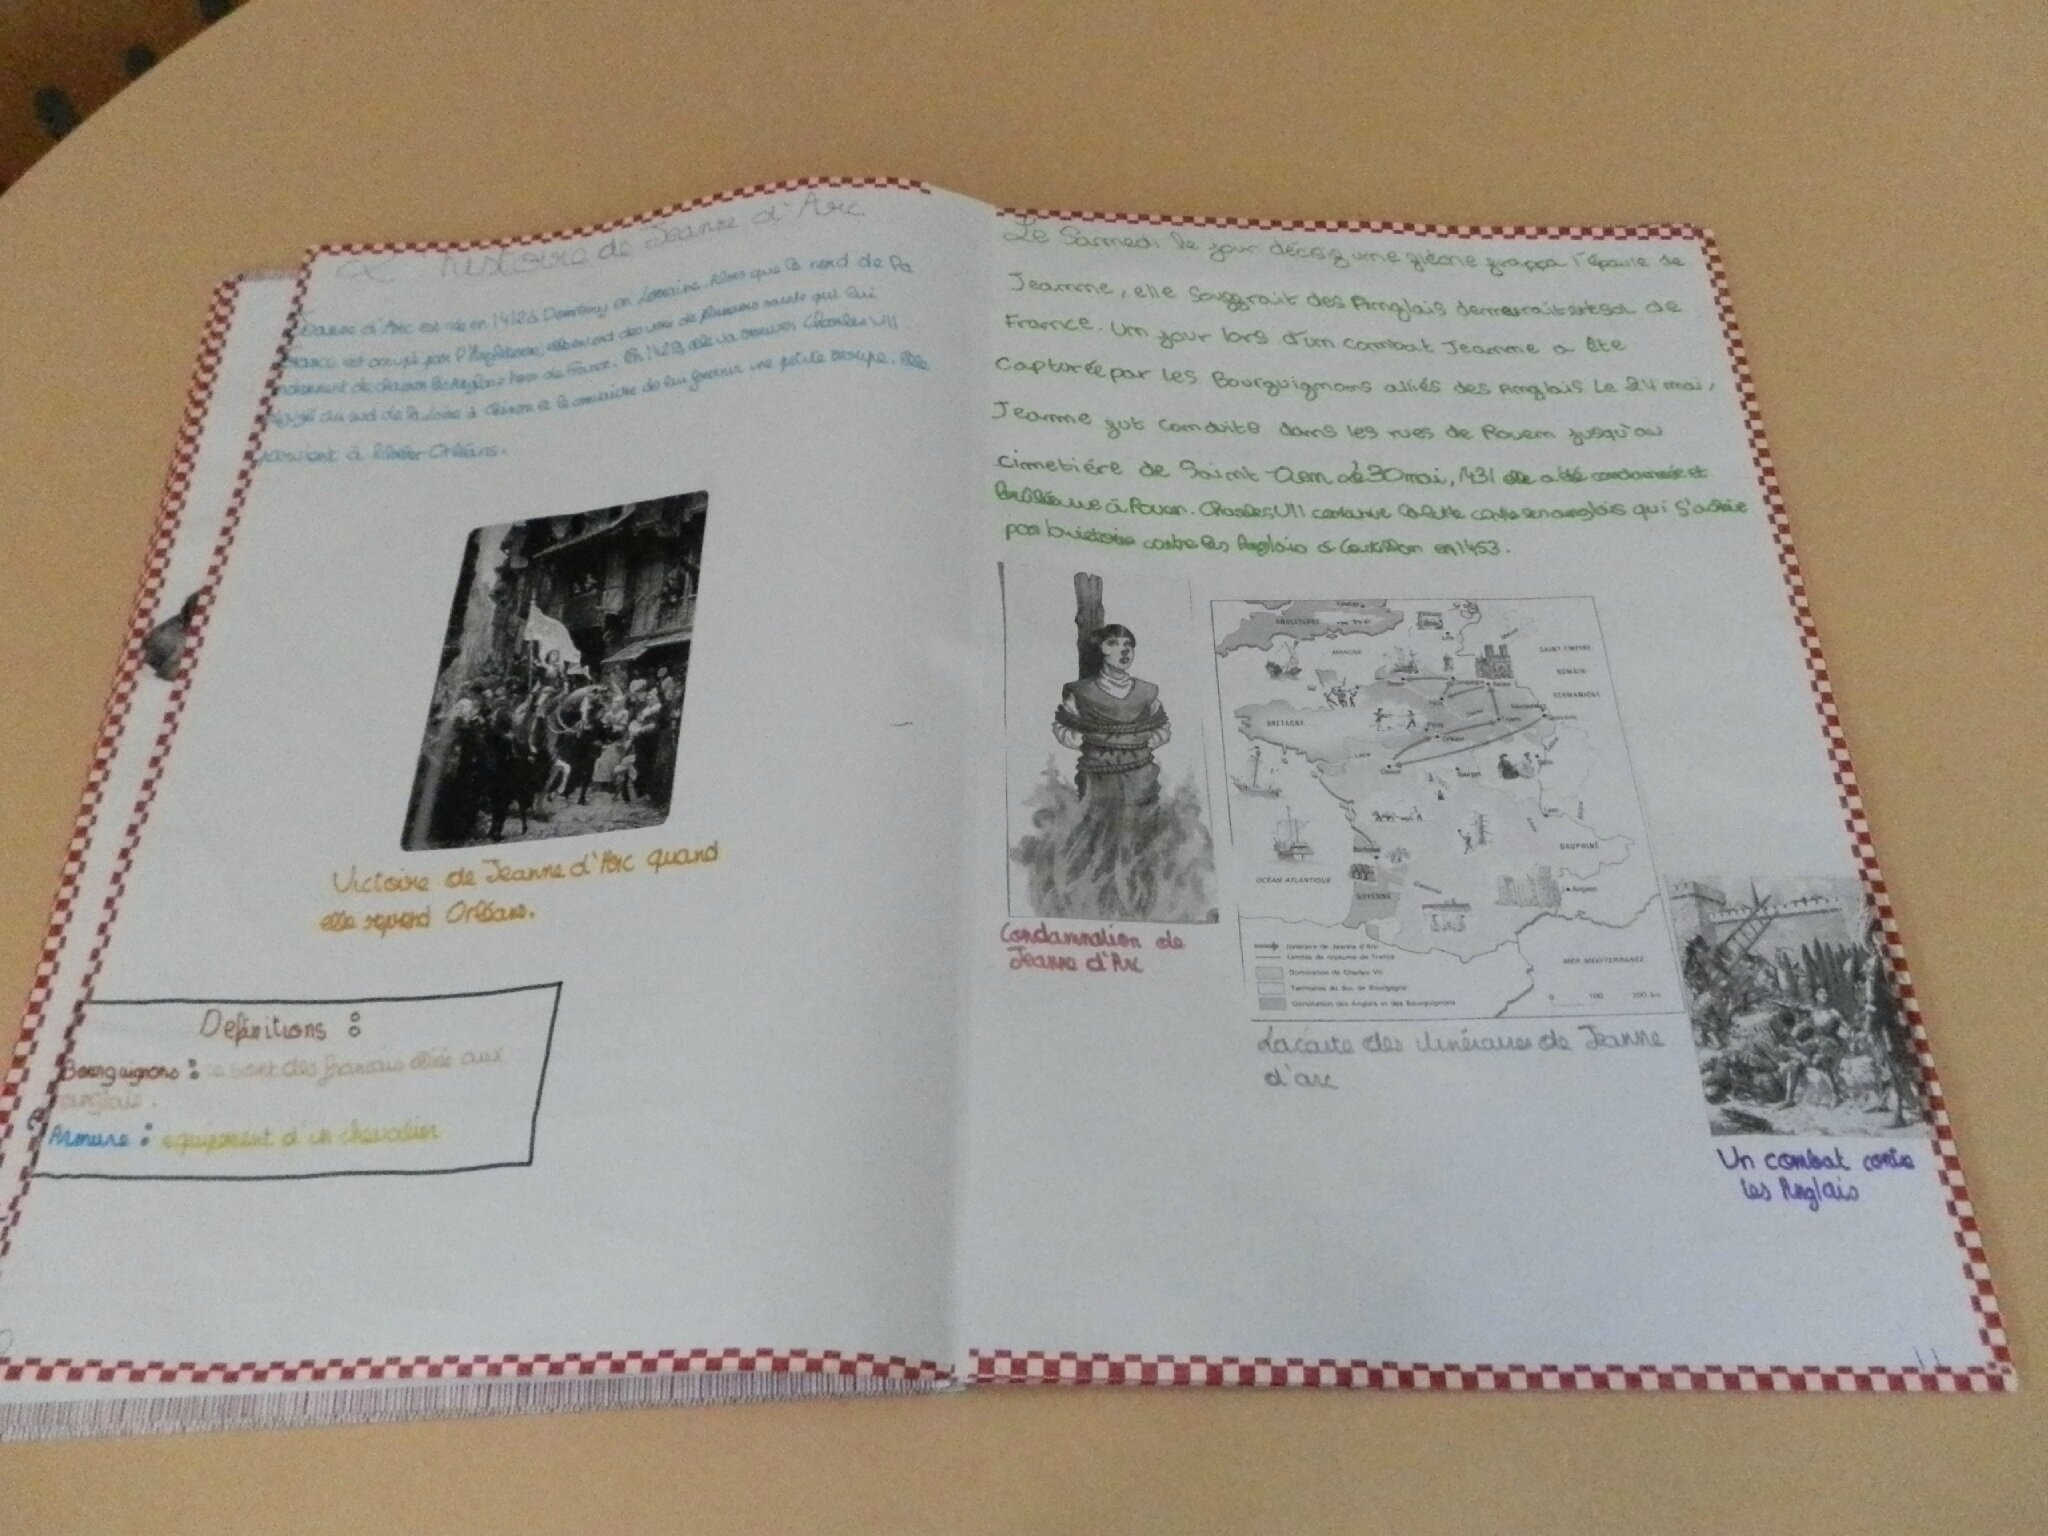 L'histoire de Jeanne d'Arc
Jeanne d'Arc est née en 1412 à Domrémy en Lorraine. Alors que le nord de la
France est occupé par l'Angleterre, elle entend des voix de plusieurs saints qui lui
de chasser les Anglais hors de France. En 1429 elle va trouver Charles VII
au sud de la Loire à Chinon et le convaincre de lui fournir une petite troupe. Elle
parvient à libérer Orléans.
Victoire de Jeanne d'Arc quand
elle reprend Orléans.
Définitions :
Bourguignons : ce sont des français alliés aux
anglais.
Armure : equipement d'un chevalier
Le Samedi le jour décisif une flèche frappa l'épaule de
Jeanne, elle souffrait des Anglais de
France. Un jour lors d'un combat Jeanne a été
capturée par les Bourguignons alliés des Anglais. Le 24 mai,
Jeanne fut conduite dans les rues de Rouen jusqu'au
cimetière de Saint-Oen le 30 mai, 1431 elle a été condamnée et
à Rouen. Charles VII continue la lutte contre les anglais qui s'achève
par la victoire contre les Anglais à Castillon en 1453.
ANGLETERRE
MANCHE
SAINT-EMPIRE-
ROMAIN-
GERMANIQUE
BRETAGNE
Loire
Chinon
Bourges
Lyon
Bordeaux
DAUPHINÉ
OCÉAN ATLANTIQUE
GUYENNE
Avignon
Itinéraire de Jeanne d'Arc
Limites du royaume de France
Domination de Charles VII
Territoires du duc de Bourgogne
Domination des Anglais et des Bourguignons
MER MÉDITERRANÉE
0 100 200 km
Condamnation de
Jeanne d'Arc
La carte des itinéraires de Jeanne
d'arc
Un combat contre
les Anglais
11